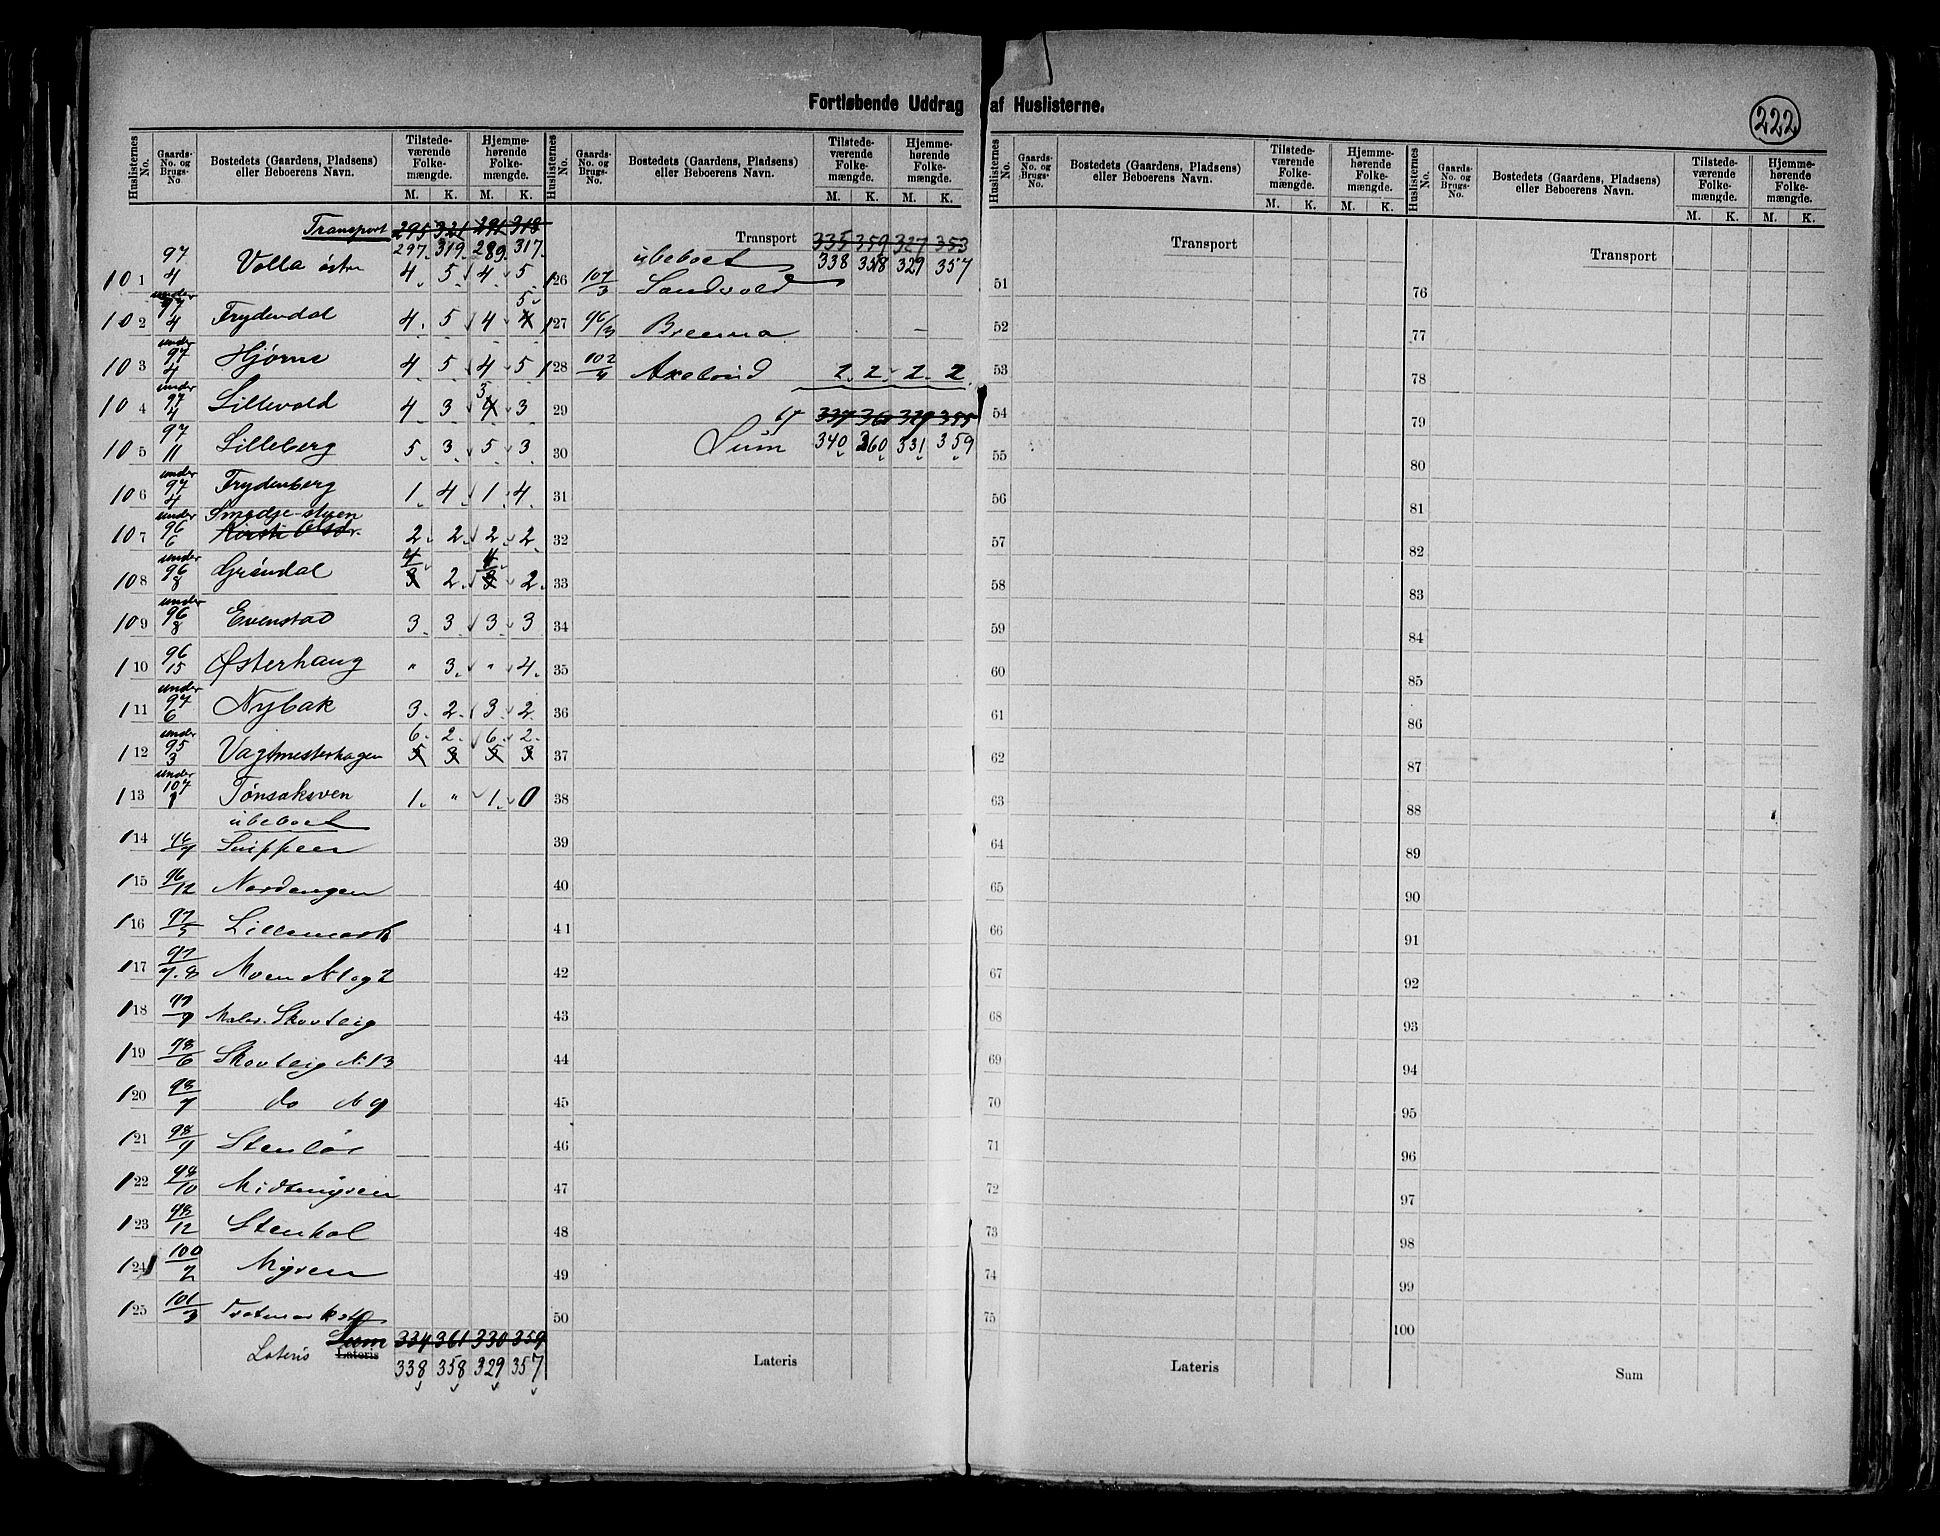 Fortløbende Uddrag af Huslisterne.
222
Huslisternes No. Gaards-No. og Brugs-No. Bostedets (Gaardens, Pladsens) eller Beboerens Navn. Tilstedeværende Folkemængde. Hjemmehørende Folkemængde.
M. K. M. K.
Transport 295 321 291 318
297. 319. 289. 317.
101 97/4 Volla østre 4 5 4 5
102 under 97/4 Frydendal 4 5 4 4 5
103 under 97/4 Hjørne 4 5 4 5
104 under 97/4 Lillevold 4 3 4 3 3
105 97/11 Lilleberg 5 3 5 3
106 under 97/4 Frydenberg 1 4 1 4
107 under 96/6 Smedje-styen 2 2 2 2
108 under 96/8 Grøndal 3 4 2 3 4 2
109 under 96/8 Evenstad 3 3 3 3
110 96/15 Østerhaug " 3 " 4
111 under 97/6 Nybak 3 2 3 2
112 under 95/3 Vagtmesterhagen 6 2 6 2
5 3 5 3
113 under 107/1 Tønsaksven 1 " 1 0
ubeboet
114 Snippen
115 96/12 Nordengen
116 97/5 Lillemark
117 97/7.8 Moen N 1 og 2
118 97/9 Skovteig
119 98/6 Skovteig N. 13
120 98/7 do N 9
121 98/9 Stenløs
122 98/10 Midtmyren
123 98/12 Stenhol
124 100/2 Myren
125 101/3
Sum 334 361 330 359
Lateris Lateris 338 358 329 357
Huslisternes No. Gaards-No. og Brugs-No. Bostedets (Gaardens, Pladsens) eller Beboerens Navn. Tilstedeværende Folkemængde. Hjemmehørende Folkemængde.
M. K. M. K.
Transport 335 359 327 353
ubeboet 338 358 329 357
126 107/3 Sandvold
127 96/3 Breema
128 102/4 Axelvind 2 2 2 2
29
30 Sum 340 360 331 359
31
32
33
34
35
36
37
38
39
40
41
42
43
44
45
46
47
48
49
50
Lateris
Huslisternes No. Gaards-No. og Brugs-No. Bostedets (Gaardens, Pladsens) eller Beboerens Navn. Tilstedeværende Folkemængde. Hjemmehørende Folkemængde.
M. K. M. K.
Transport
51
52
53
54
55
56
57
58
59
60
61
62
63
64
65
66
67
68
69
70
71
72
73
74
75
Lateris
Huslisternes No. Gaards-No. og Brugs-No. Bostedets (Gaardens, Pladsens) eller Beboerens Navn. Tilstedeværende Folkemængde. Hjemmehørende Folkemængde.
M. K. M. K.
Transport
76
77
78
79
80
81
82
83
84
85
86
87
88
89
90
91
92
93
94
95
96
97
98
99
100
Sum